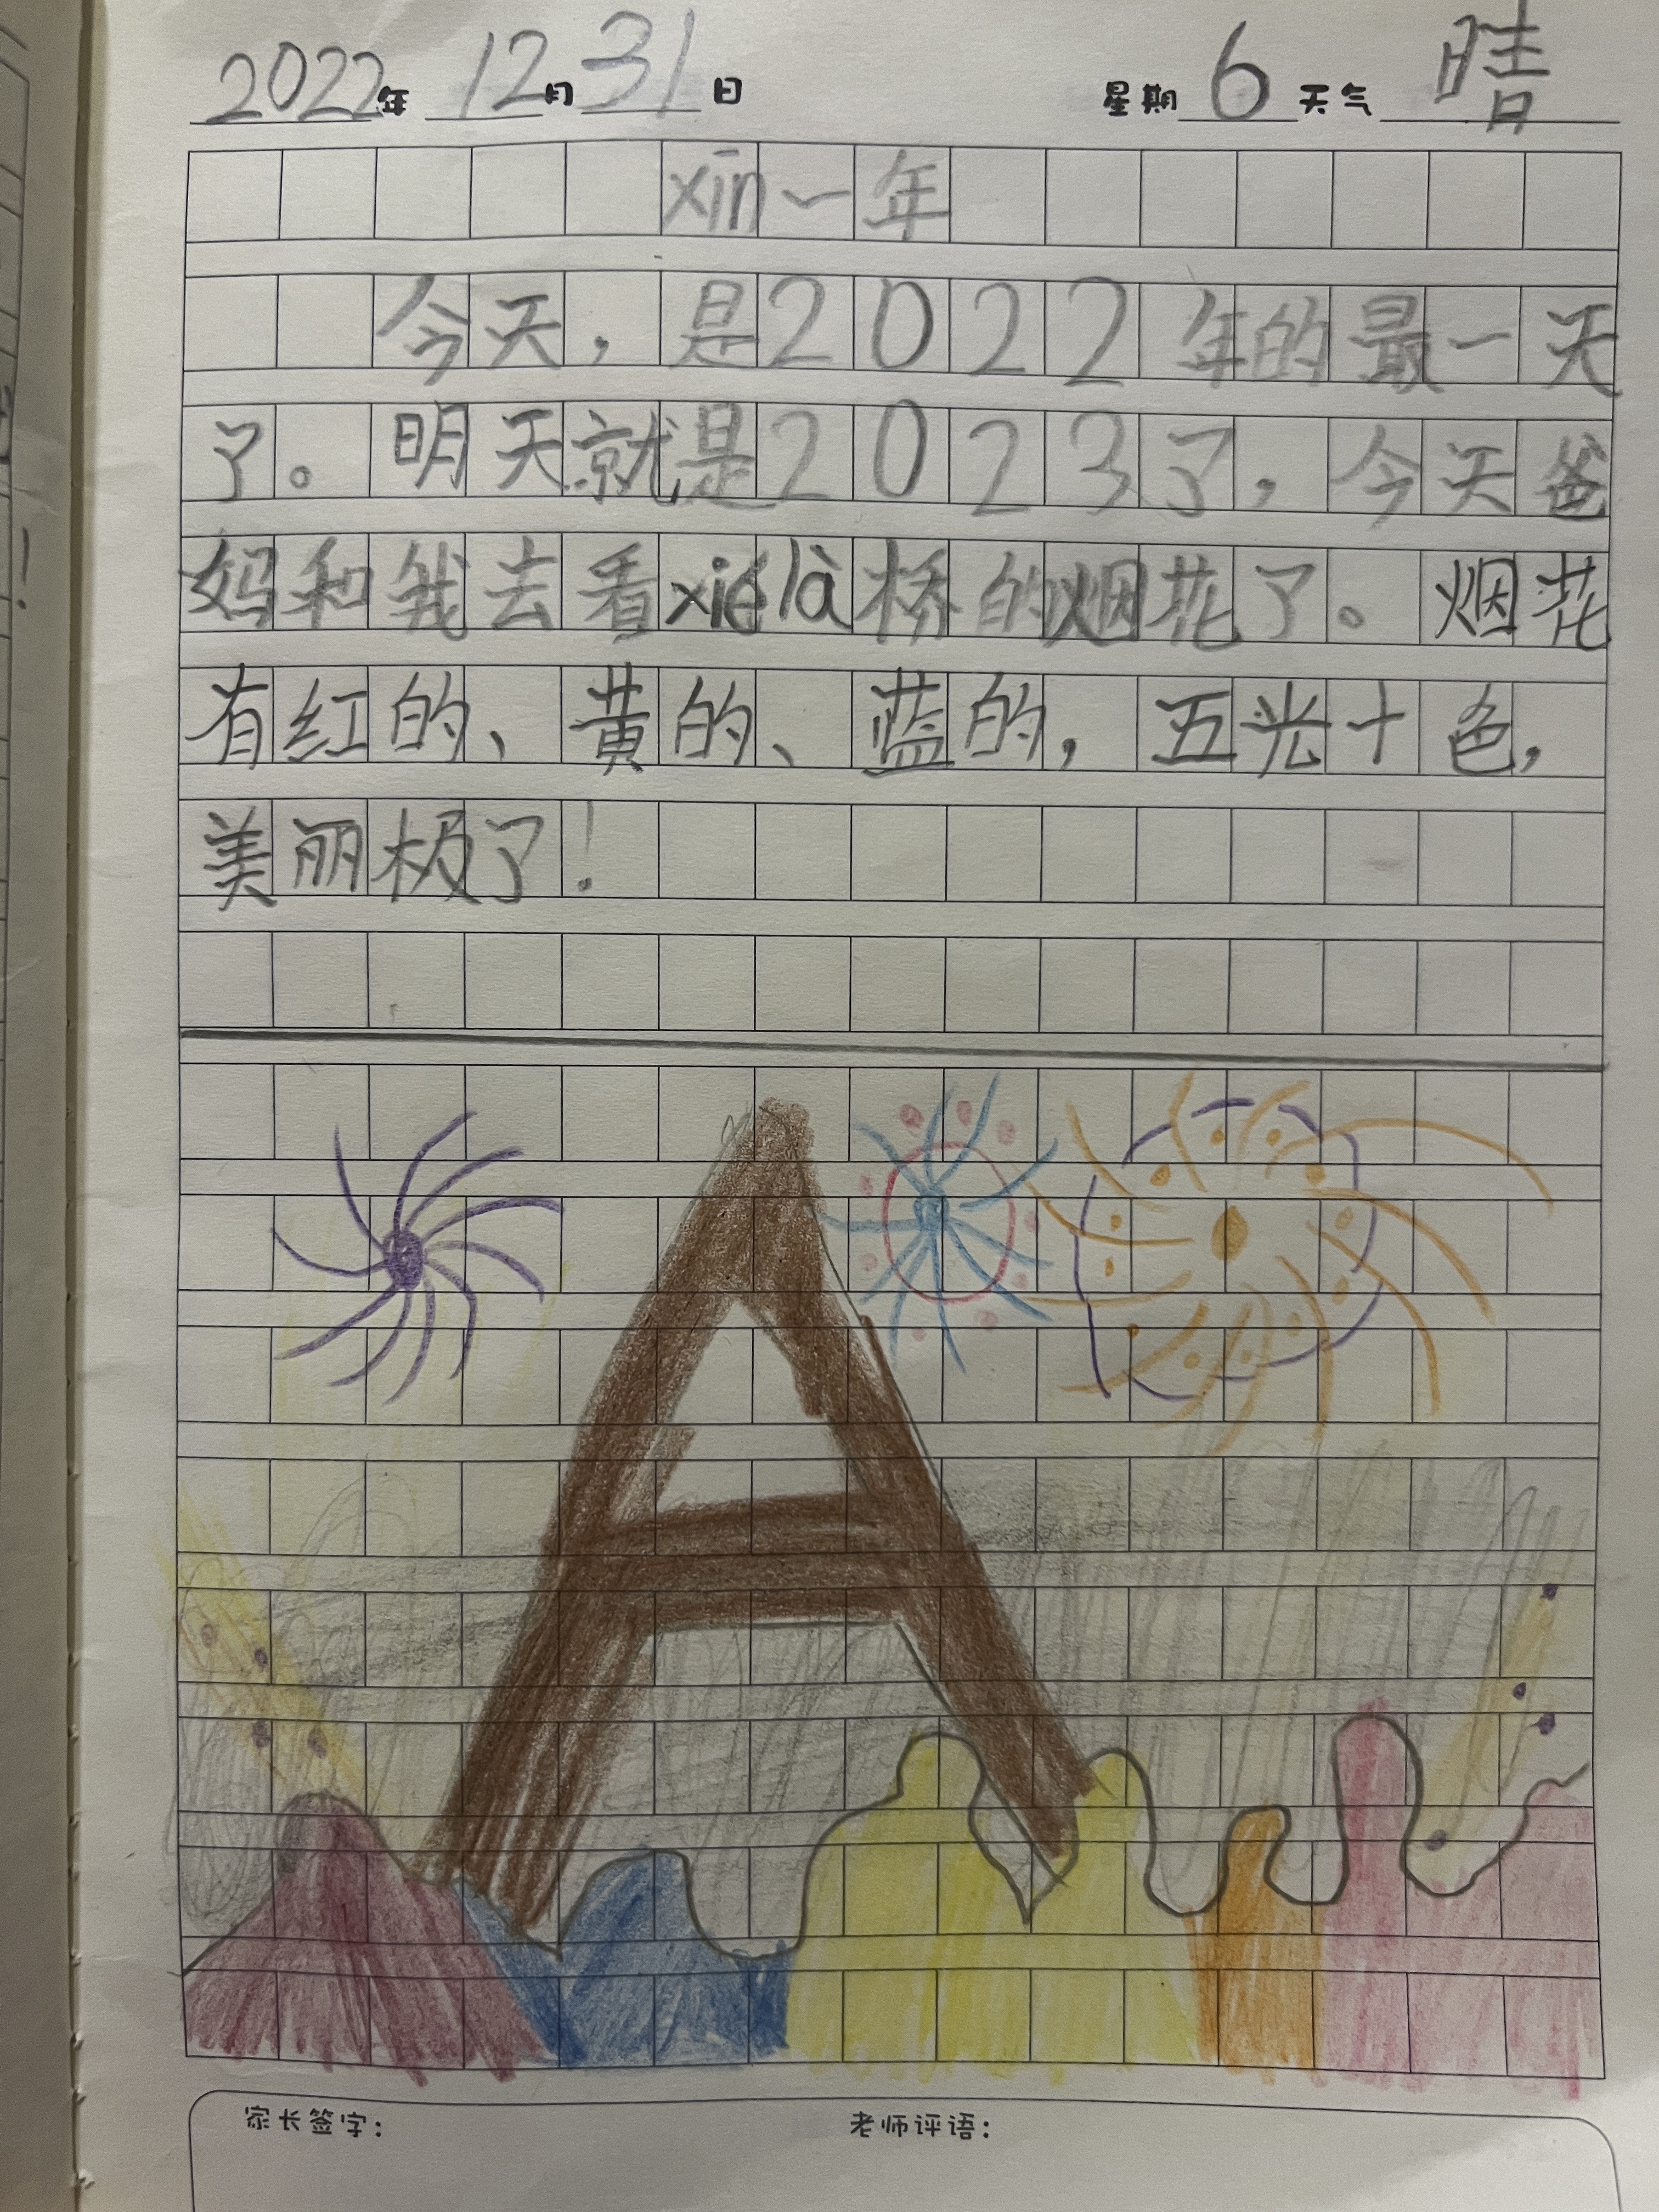 2022年 12月 31日 星期 6 天气 晴
xīn一年
今天，是2022年的最一天
了。明天就是2023了，今天爸
妈和我去看xiélà桥的烟花了。烟花
有红的、黄的、蓝的，五光十色，
美丽极了！
家长签字： 老师评语：